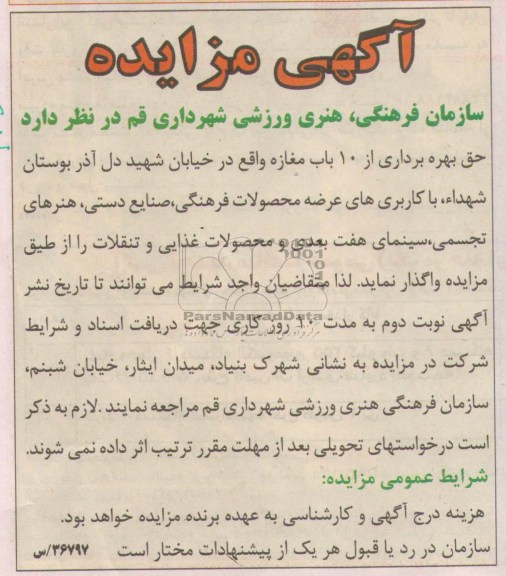 آگهی مزایده
سازمان فرهنگی، هنری ورزشی شهرداری قم در نظر دارد
حق بهره برداری از ۱۰ باب مغازه واقع در خیابان شهید دل آذر بوستان
شهداء، با کاربری های عرضه محصولات فرهنگی،صنایع دستی، هنرهای
تجسمی،سینمای هفت بعدی و محصولات غذایی و تنقلات را از طیق
مزایده واگذار نماید. لذا متقاضیان واجد شرایط می توانند تا تاریخ نشر
آگهی نوبت دوم به مدت ۱۰ روز کاری جهت دریافت اسناد و شرایط
شرکت در مزایده به نشانی شهرک بنیاد، میدان ایثار، خیابان شبنم،
سازمان فرهنگی هنری ورزشی شهرداری قم مراجعه نمایند .لازم به ذکر
است درخواستهای تحویلی بعد از مهلت مقرر ترتیب اثر داده نمی شوند.
شرایط عمومی مزایده:
هزینه درج آگهی و کارشناسی به عهده برنده مزایده خواهد بود.
سازمان در رد یا قبول هر یک از پیشنهادات مختار است ۳۶۷۹۷/س
ParsNamadData